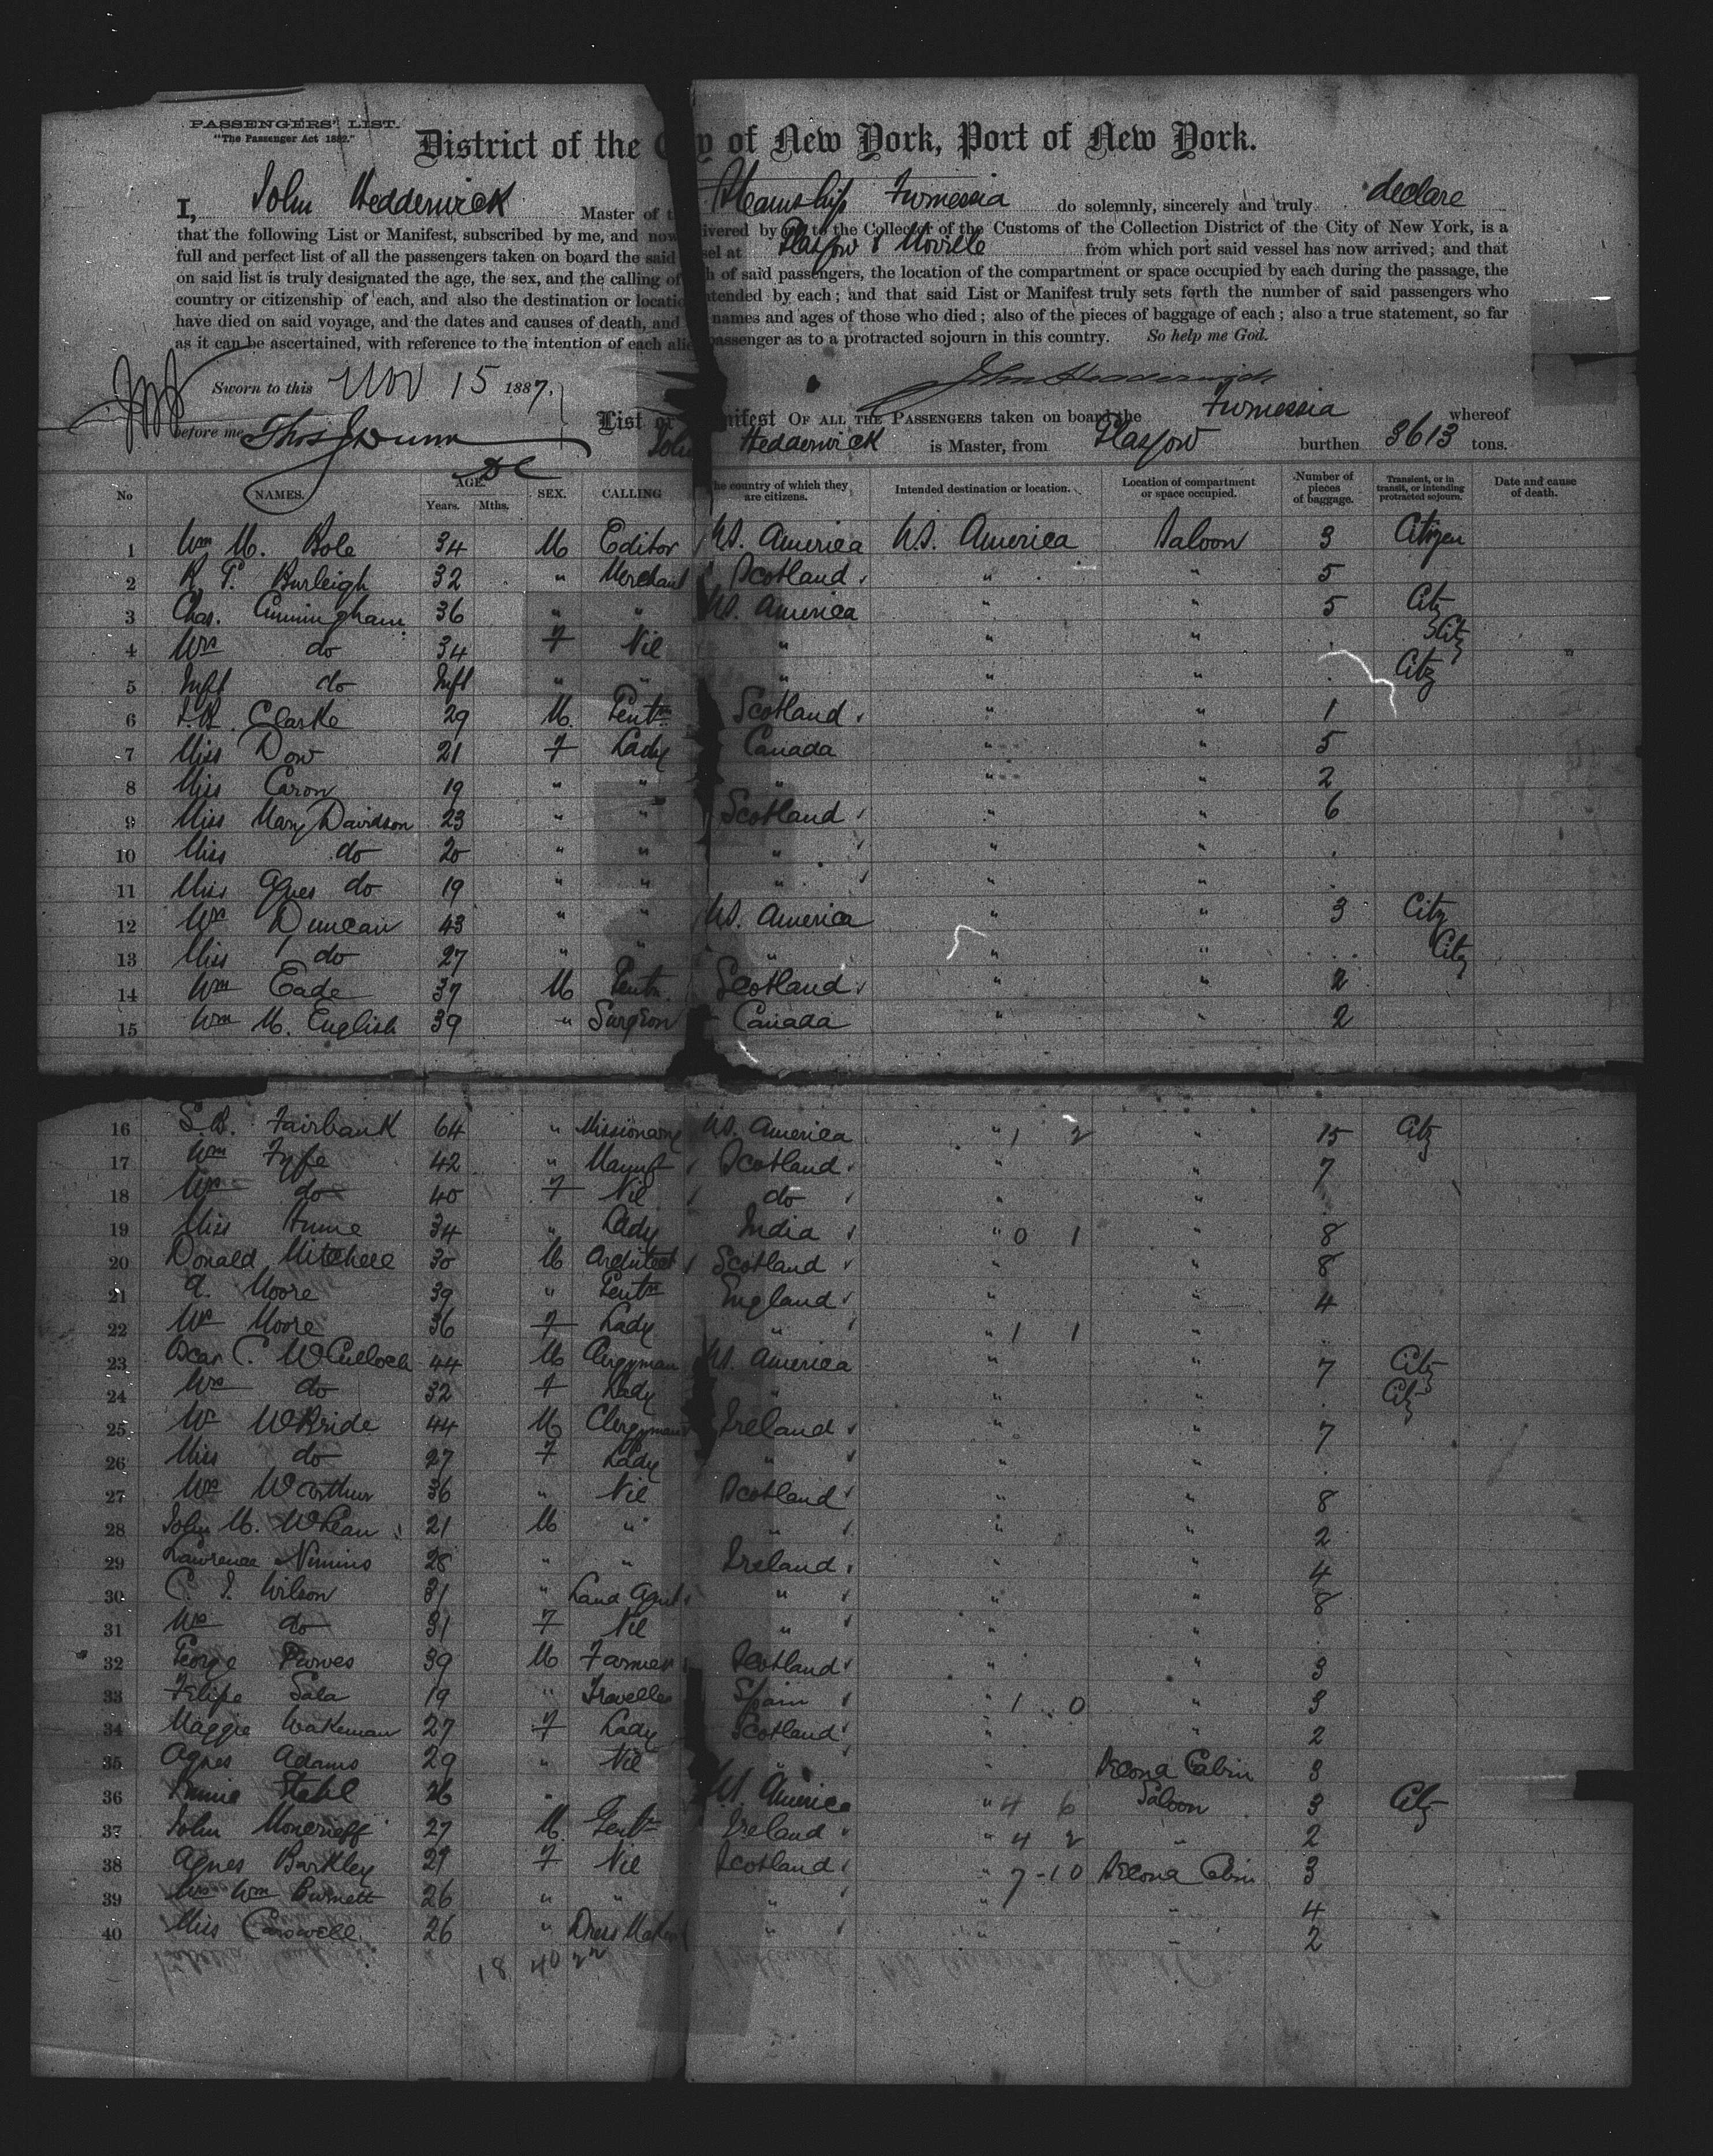 PASSENGERS' LIST.
"The Passenger Act 1882."
District of the City of New York, Port of New York.
I, John Hedderwick Master of the Steamship Furnessia do solemnly, sincerely and truly declare
that the following List or Manifest, subscribed by me, and now delivered by me to the Collector of the Customs of the Collection District of the City of New York, is a
full and perfect list of all the passengers taken on board the said vessel at Glasgow & Moville from which port said vessel has now arrived; and that
on said list is truly designated the age, the sex, and the calling of each of said passengers, the location of the compartment or space occupied by each during the passage, the
country or citizenship of each, and also the destination or location intended by each; and that said List or Manifest truly sets forth the number of said passengers who
have died on said voyage, and the dates and causes of death, and names and ages of those who died; also of the pieces of baggage of each; also a true statement, so far
as it can be ascertained, with reference to the intention of each alien passenger as to a protracted sojourn in this country. So help me God.
Sworn to this Nov 15 1887. John Hedderwick
before me Thos J Dunn
DC
List or Manifest OF ALL THE PASSENGERS taken on board the Furnessia whereof
John Hedderwick is Master, from Glasgow burthen 3613 tons.
No NAMES. AGE. Years. Mths. SEX. CALLING The country of which they are citizens. Intended destination or location. Location of compartment or space occupied. Number of pieces of baggage. Transient, or in transit, or intending protracted sojourn. Date and cause of death.
1 Wm M. Bole 34 M Editor U.S. America U.S. America Saloon 3 Citizen
2 R. P. Burleigh 32 " Merchant Scotland " " 5
3 Chas. Cunningham 36 " " U.S. America " " 5 City
4 Mrs do 34 F Nil " " " City
5 Inft do Inft " " " " " City
6 Clarke 29 M. Gentn Scotland " " 1
7 Miss Dow 21 F Lady Canada " " 5
8 Miss Caron 19 " " " " " 2
9 Miss Mary Davidson 23 " " Scotland " " 6
10 Miss do 20 " " " " "
11 Miss Agnes do 19 " " " " "
12 Mrs Duncan 43 " " U.S. America " " 3 City
13 Miss do 27 " " " " " City
14 Wm Eade 37 M Gentn. Scotland " " 2
15 Wm M. English 39 " Surgeon Canada " " 2
16 S.B. Fairbank 64 " Missionary U.S. America " 1 2 " 15 City
17 Wm Fyfe 42 " Manuft Scotland " " 7
18 Mrs do 40 F Nil do " "
19 Miss Hume 34 " Lady India " 0 1 " 8
20 Donald Mitchell 30 M Architect Scotland " " 8
21 A. Moore 39 " Gentn England " " 4
22 Mrs Moore 36 F Lady " " 1 1 "
23 Oscar C. McCulloch 44 M Clergyman U.S. America " " 7 City
24 Mrs do 32 F Lady " " " City
25 Mr McBride 44 M Clergyman Ireland " " 7
26 Miss do 27 F Lady " " "
27 Mrs McArthur 36 " Nil Scotland " " 8
28 John M. McLean 21 M " " " " 2
29 Lawrence Nimins 28 " " Ireland " " 4
30 C. J. Wilson 31 " Land Agent " " " 8
31 Mrs do 31 F Nil " " "
32 George Purves 39 M Farmer Scotland " " 3
33 Felipe Sala 19 " Traveller Spain " 1 0 " 3
34 Maggie Wakeman 27 F Lady Scotland " " 2
35 Agnes Adams 29 " Nil " " Second Cabin 3
36 Stahl 26 " U.S. America " 4 6 Saloon 3 City
37 John Moncrieff 27 M. Gentn Ireland " 4 2 " 2
38 Agnes Barkley 29 F Nil Scotland " 7-10 Second Cabin 3
39 Mrs Wm Burnett 26 " " " " " 4
40 Miss Carswell 26 " Dress Maker " " " 2
18 40 22